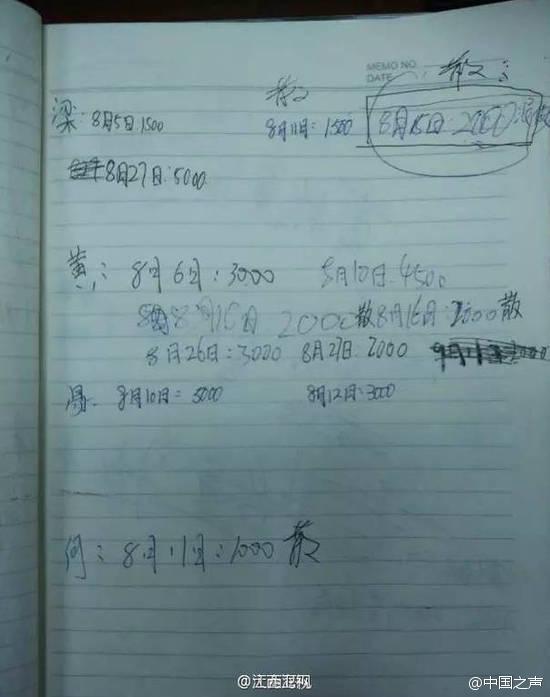 MEMO NO.
DATE
散:
散
梁: 8月5日:1500 8月11日:1500 8月15日:2000
8月27日:5000
黄: 8月6日:3000 8月10日.4500
8月16日 2000散 8月16日:2000散
8月26日:3000 8月27日.2000
8月10日:5000 8月12日:3000
何: 8月11日:1000 散
@江西卫视
@中国之声